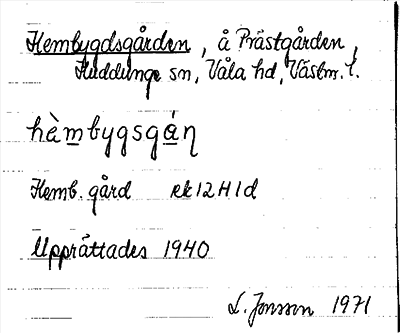 Hembygdsgården, å Prästgården,
Huddunge sn, Våla hd, Västm. l.
hèmbygsgáṇ
Hemb. gård ek 12 H 1 d
Upprättades 1940
L. Jonsson 1971